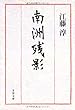 江藤淳
南洲残影